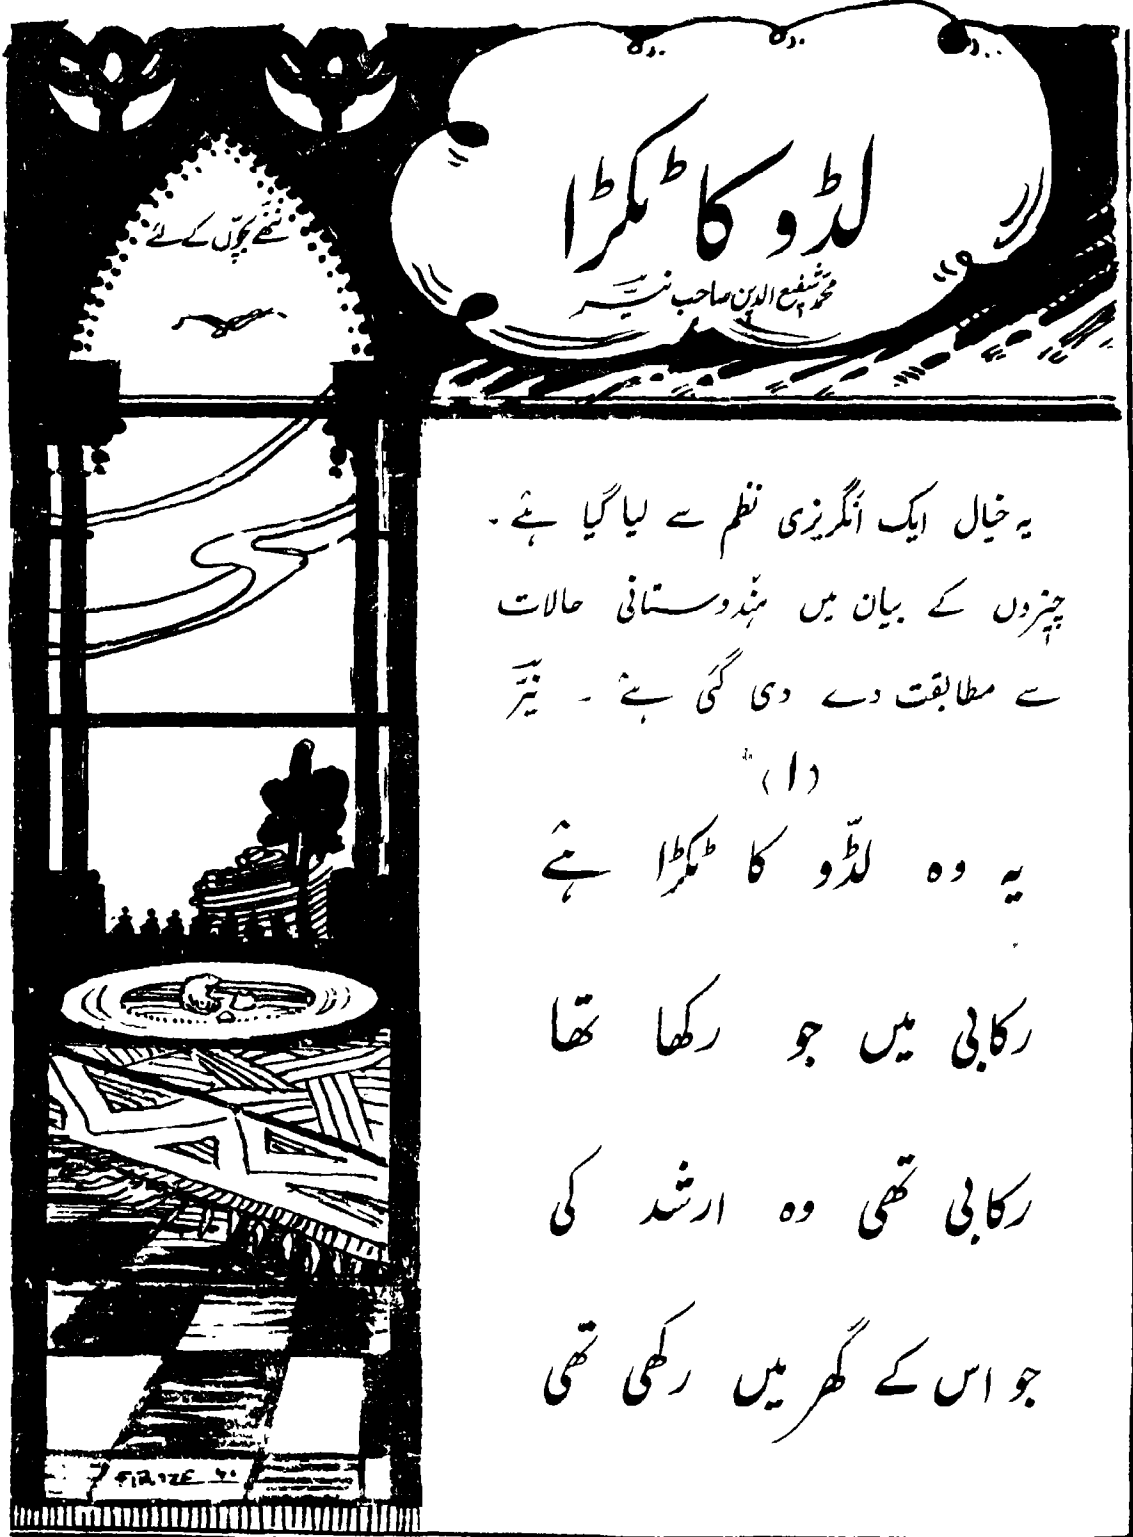 ننھے بچوں کے لئے
لڈو کا ٹکڑا
محمد شفیع الدین صاحب نیر
یہ خیال ایک انگریزی نظم سے لیا گیا ہے ۔
چیزوں کے بیان میں ہندوستانی حالات
سے مطابقت دے دی گئی ہے ۔ نیّر
(۱)
یہ وہ لڈّو کا ٹکڑا ہے
رکابی میں جو رکھا تھا
رکابی تھی وہ ارشد کی
جو اس کے گھر میں رکھی تھی
FIROZE 40